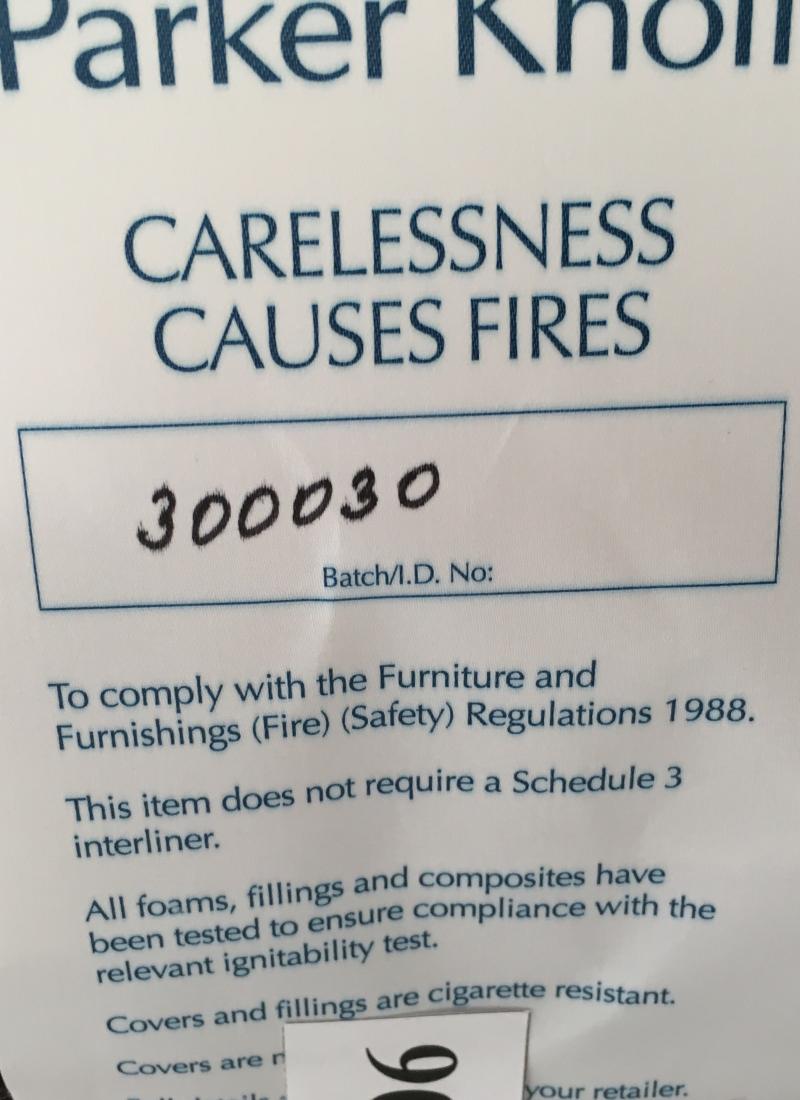 Parker Knoll
CARELESSNESS
CAUSES FIRES
300030
Batch/I.D. No:
To comply with the Furniture and
Furnishings (Fire) (Safety) Regulations 1988.
This item does not require a Schedule 3
interliner.
All foams, fillings and composites have
been tested to ensure compliance with the
relevant ignitability test.
Covers and fillings are cigarette resistant.
Covers are
your retailer.